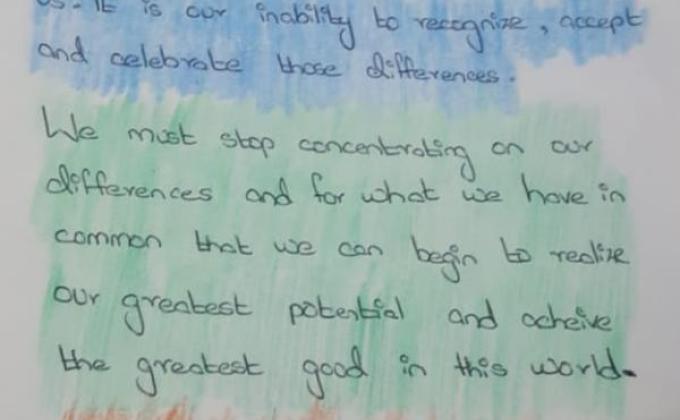 us. It is our inability to recognize, accept
and celebrate those differences.
We must stop concentrating on our
differences and for what we have in
common that we can begin to realize
our greatest potential and acheive
the greatest good in this world.